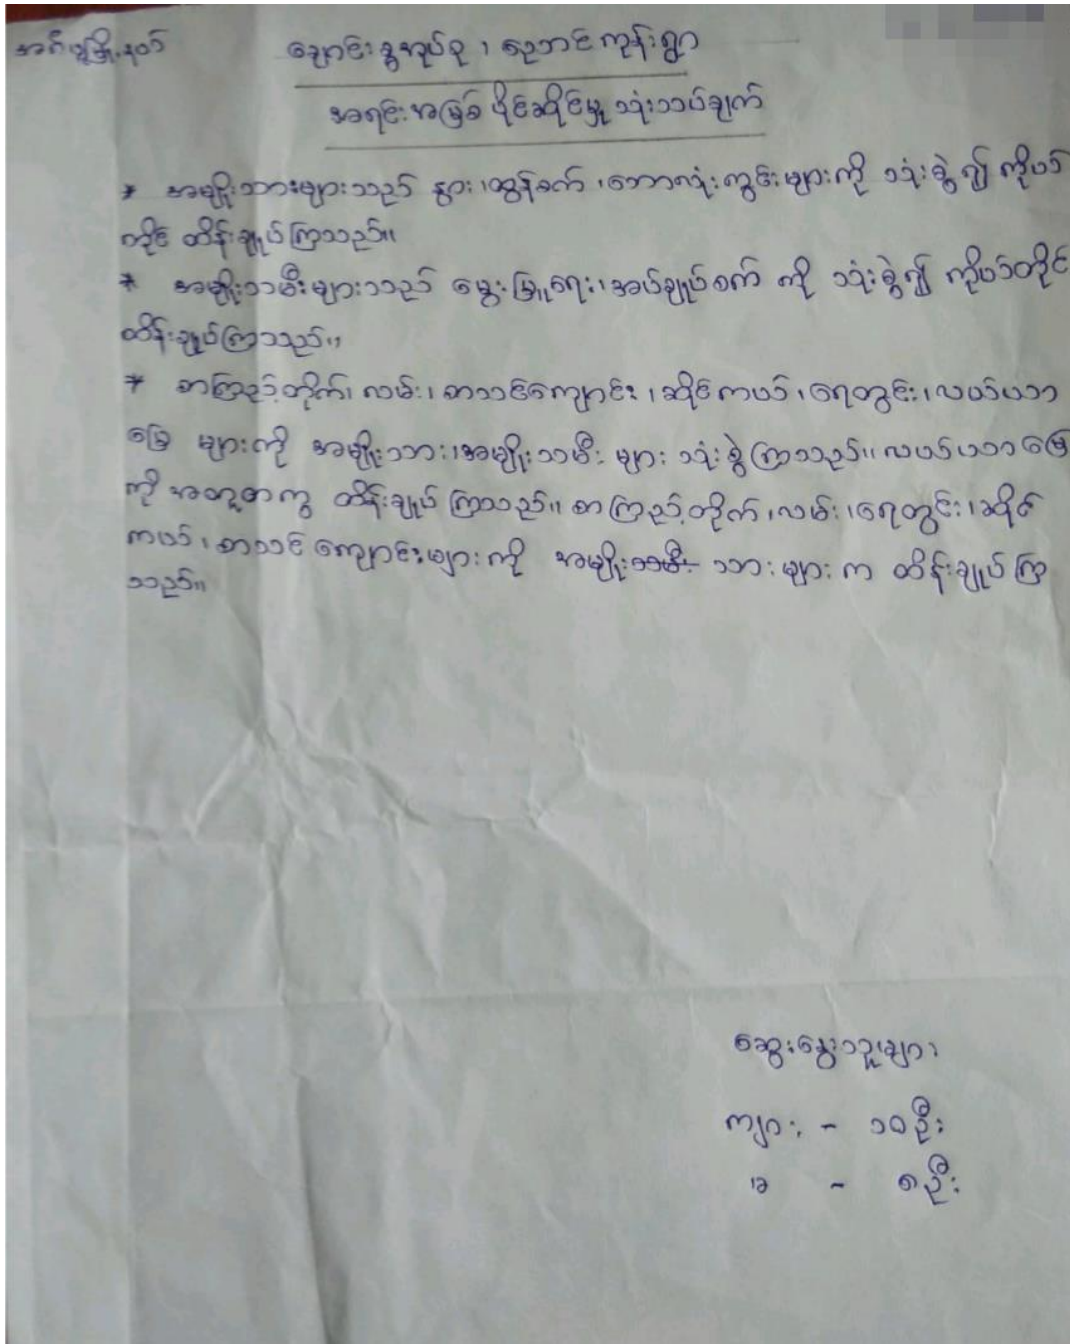 အင်္ဂပူမြို့နယ်
ချောင်းခွအုပ်စု၊ ညောင်ကုန်းရွာ
အရင်းအမြစ် ပိုင်ဆိုင်မှု သုံးသပ်ချက်
* အမျိုးသားများသည် နွား၊ ထွန်စက်၊ ဘောလုံးကွင်းများကို သုံးစွဲ၍ ကိုယ်
တိုင် ထိန်းချုပ်ကြသည်။
* အမျိုးသမီးများသည် မွေးမြူရေး၊ အပ်ချုပ်စက် ကို သုံးစွဲ၍ ကိုယ်တိုင်
ထိန်းချုပ်ကြသည်။
* စာကြည့်တိုက်၊ လမ်း၊ စာသင်ကျောင်း၊ ဆိုင်ကယ်၊ ရေတွင်း၊ လယ်ယာ
မြေ များကို အမျိုးသား၊ အမျိုးသမီး များ သုံးစွဲကြသည်။ လယ်ယာမြေ
ကို အတူတကွ ထိန်းချုပ်ကြသည်။ စာကြည့်တိုက်၊ လမ်း၊ ရေတွင်း၊ ဆိုင်
ကယ်၊ စာသင်ကျောင်းများကို အမျိုးသားများက ထိန်းချုပ်ကြ
သည်။
ဆွေးနွေးသူများ
ကျား - ၁၀ဦး
မ - ၈ဦး